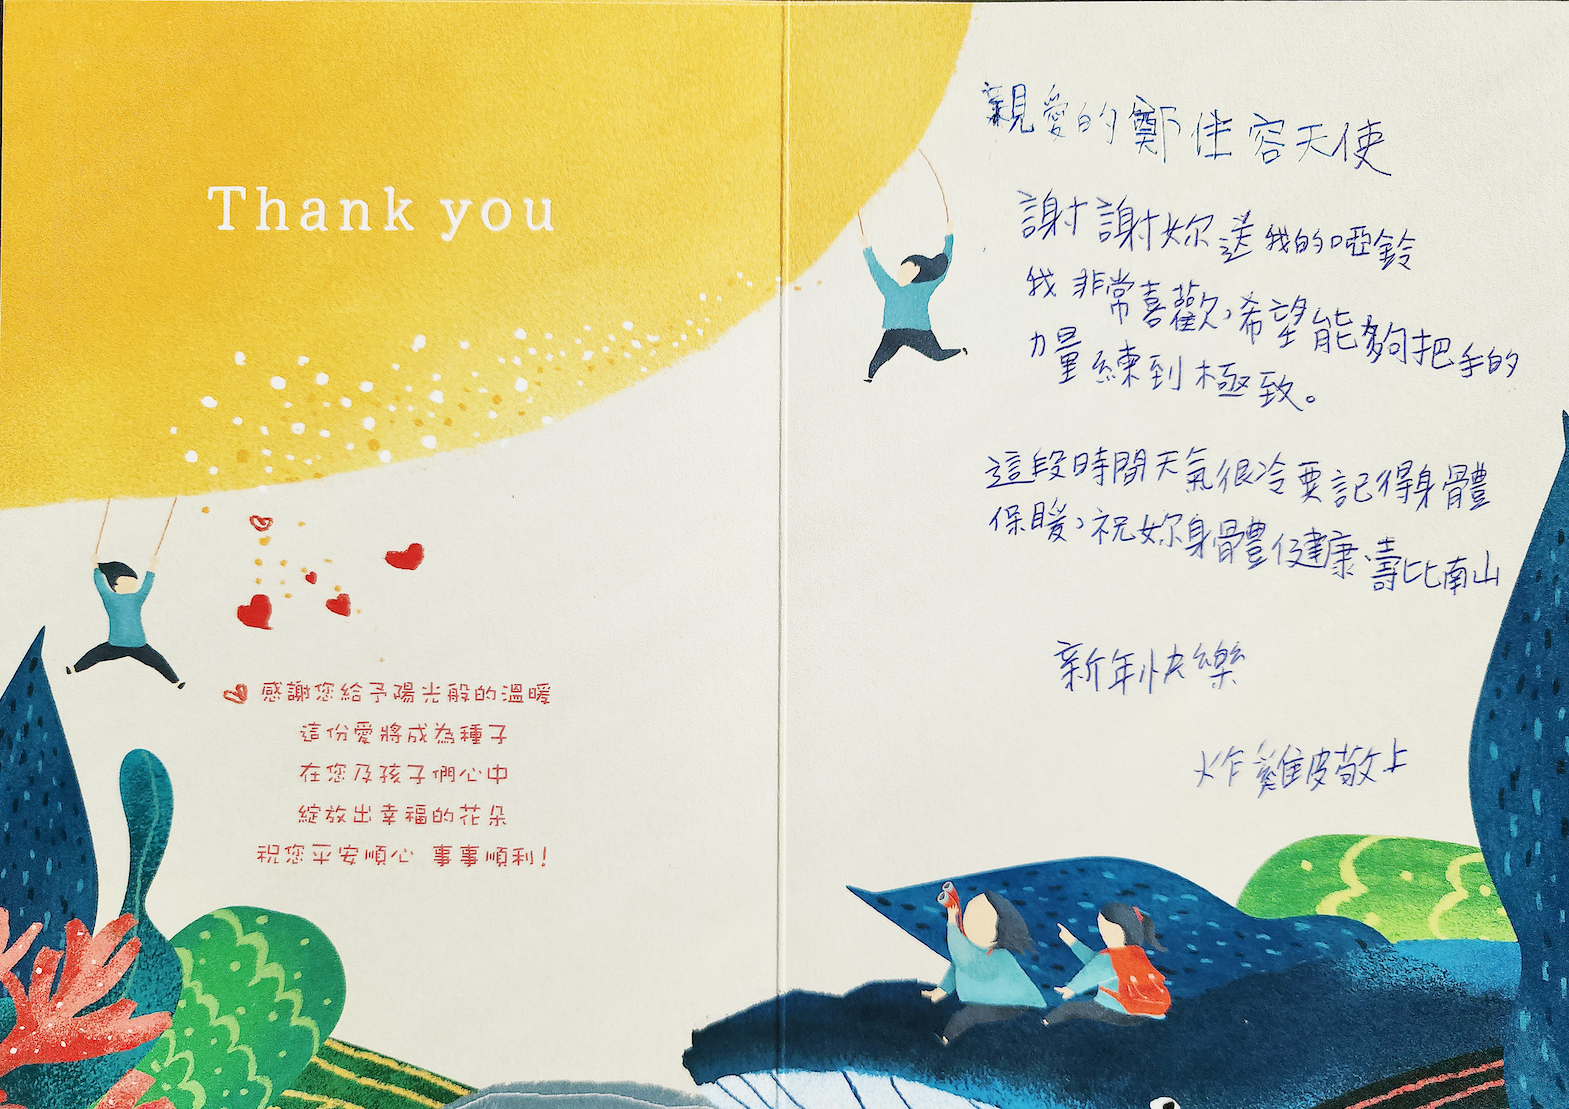 Thank you
感謝您給予陽光般的溫暖
這份愛將成為種子
在您及孩子們心中
綻放出幸福的花朵
祝您平安順心 事事順利!
親愛的鄭佳容天使
謝謝妳送我的啞鈴
我非常喜歡,希望能夠把手的
力量練到極致。
這段時間天氣很冷要記得身體
保暖,祝妳身體健康.壽比南山
新年快樂
炸雞皮敬上